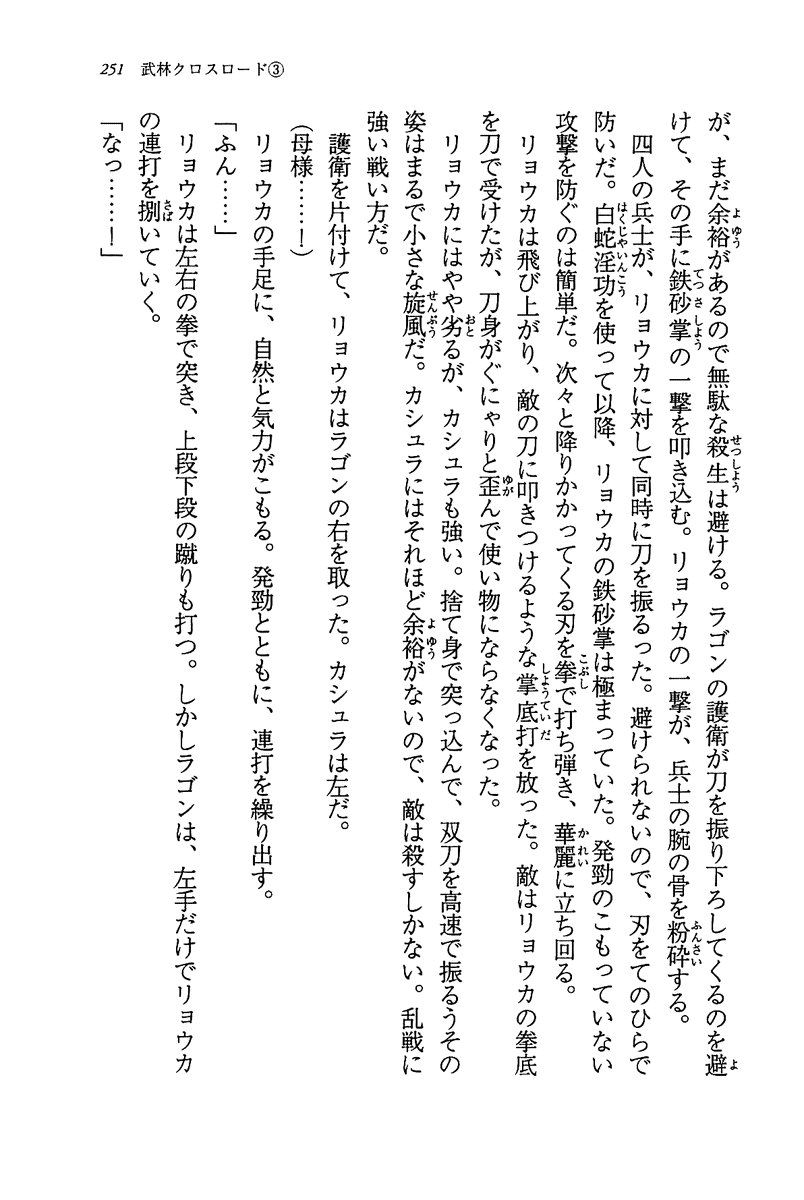 251 武林クロスロード③
が、まだ余裕があるので無駄な殺生は避ける。ラゴンの護衛が刀を振り下ろしてくるのを避
けて、その手に鉄砂掌の一撃を叩き込む。リョウカの一撃が、兵士の腕の骨を粉砕する。
四人の兵士が、リョウカに対して同時に刀を振るった。避けられないので、刃をてのひらで
防いだ。白蛇淫功を使って以降、リョウカの鉄砂掌は極まっていた。発勁のこもっていない
攻撃を防ぐのは簡単だ。次々と降りかかってくる刃を拳で打ち弾き、華麗に立ち回る。
リョウカは飛び上がり、敵の刀に叩きつけるような掌底打を放った。敵はリョウカの拳底
を刀で受けたが、刀身がぐにゃりと歪んで使い物にならなくなった。
リョウカにはやや劣るが、カシュラも強い。捨て身で突っ込んで、双刀を高速で振るうその
姿はまるで小さな旋風だ。カシュラにはそれほど余裕がないので、敵は殺すしかない。乱戦に
強い戦い方だ。
護衛を片付けて、リョウカはラゴンの右を取った。カシュラは左だ。
(母様……！)
リョウカの手足に、自然と気力がこもる。発勁とともに、連打を繰り出す。
「ふん……」
リョウカは左右の拳で突き、上段下段の蹴りも打つ。しかしラゴンは、左手だけでリョウカ
の連打を捌いていく。
「なっ……！」